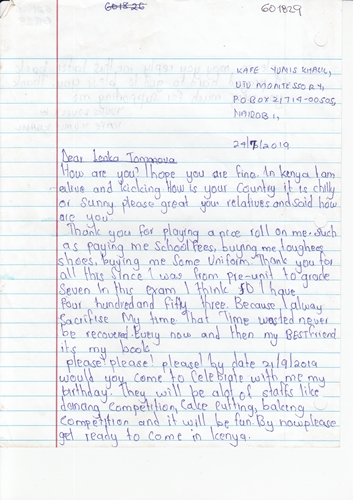 601826
601829
KAFE YUNIS KHALIL,
UTU MONTESSORY,
P.O BOX 21714-00505,
NAIROBI,
29/7/2019
Dear Lenka Tomanova
How are you? I hope you are fine. In kenya I am
alive and kicking How is your Country it is chilly
or Sunny please great your relatives and said how
are you.
Thank you for playing a nice roll on me. Such
as paying me School Fees, buying me toughees
shoes, buying me Some Uniform. Thank you for
all this Since I was from pre-unit to grade
Seven In this exam I think SO I have
Four hundred and fifty three. Because I alway
Sacrifise My time That Time wasted never
be recovered. Every now and then my BEST friend
its my book.
please! please! please! by date 21/9/2019
would you come to Celebrate with me my
birthday. They will be alot of staffs like
dancing competition, Cake Cutting, baking
Competition and it will be fun. By now please
get ready to Come in kenya.